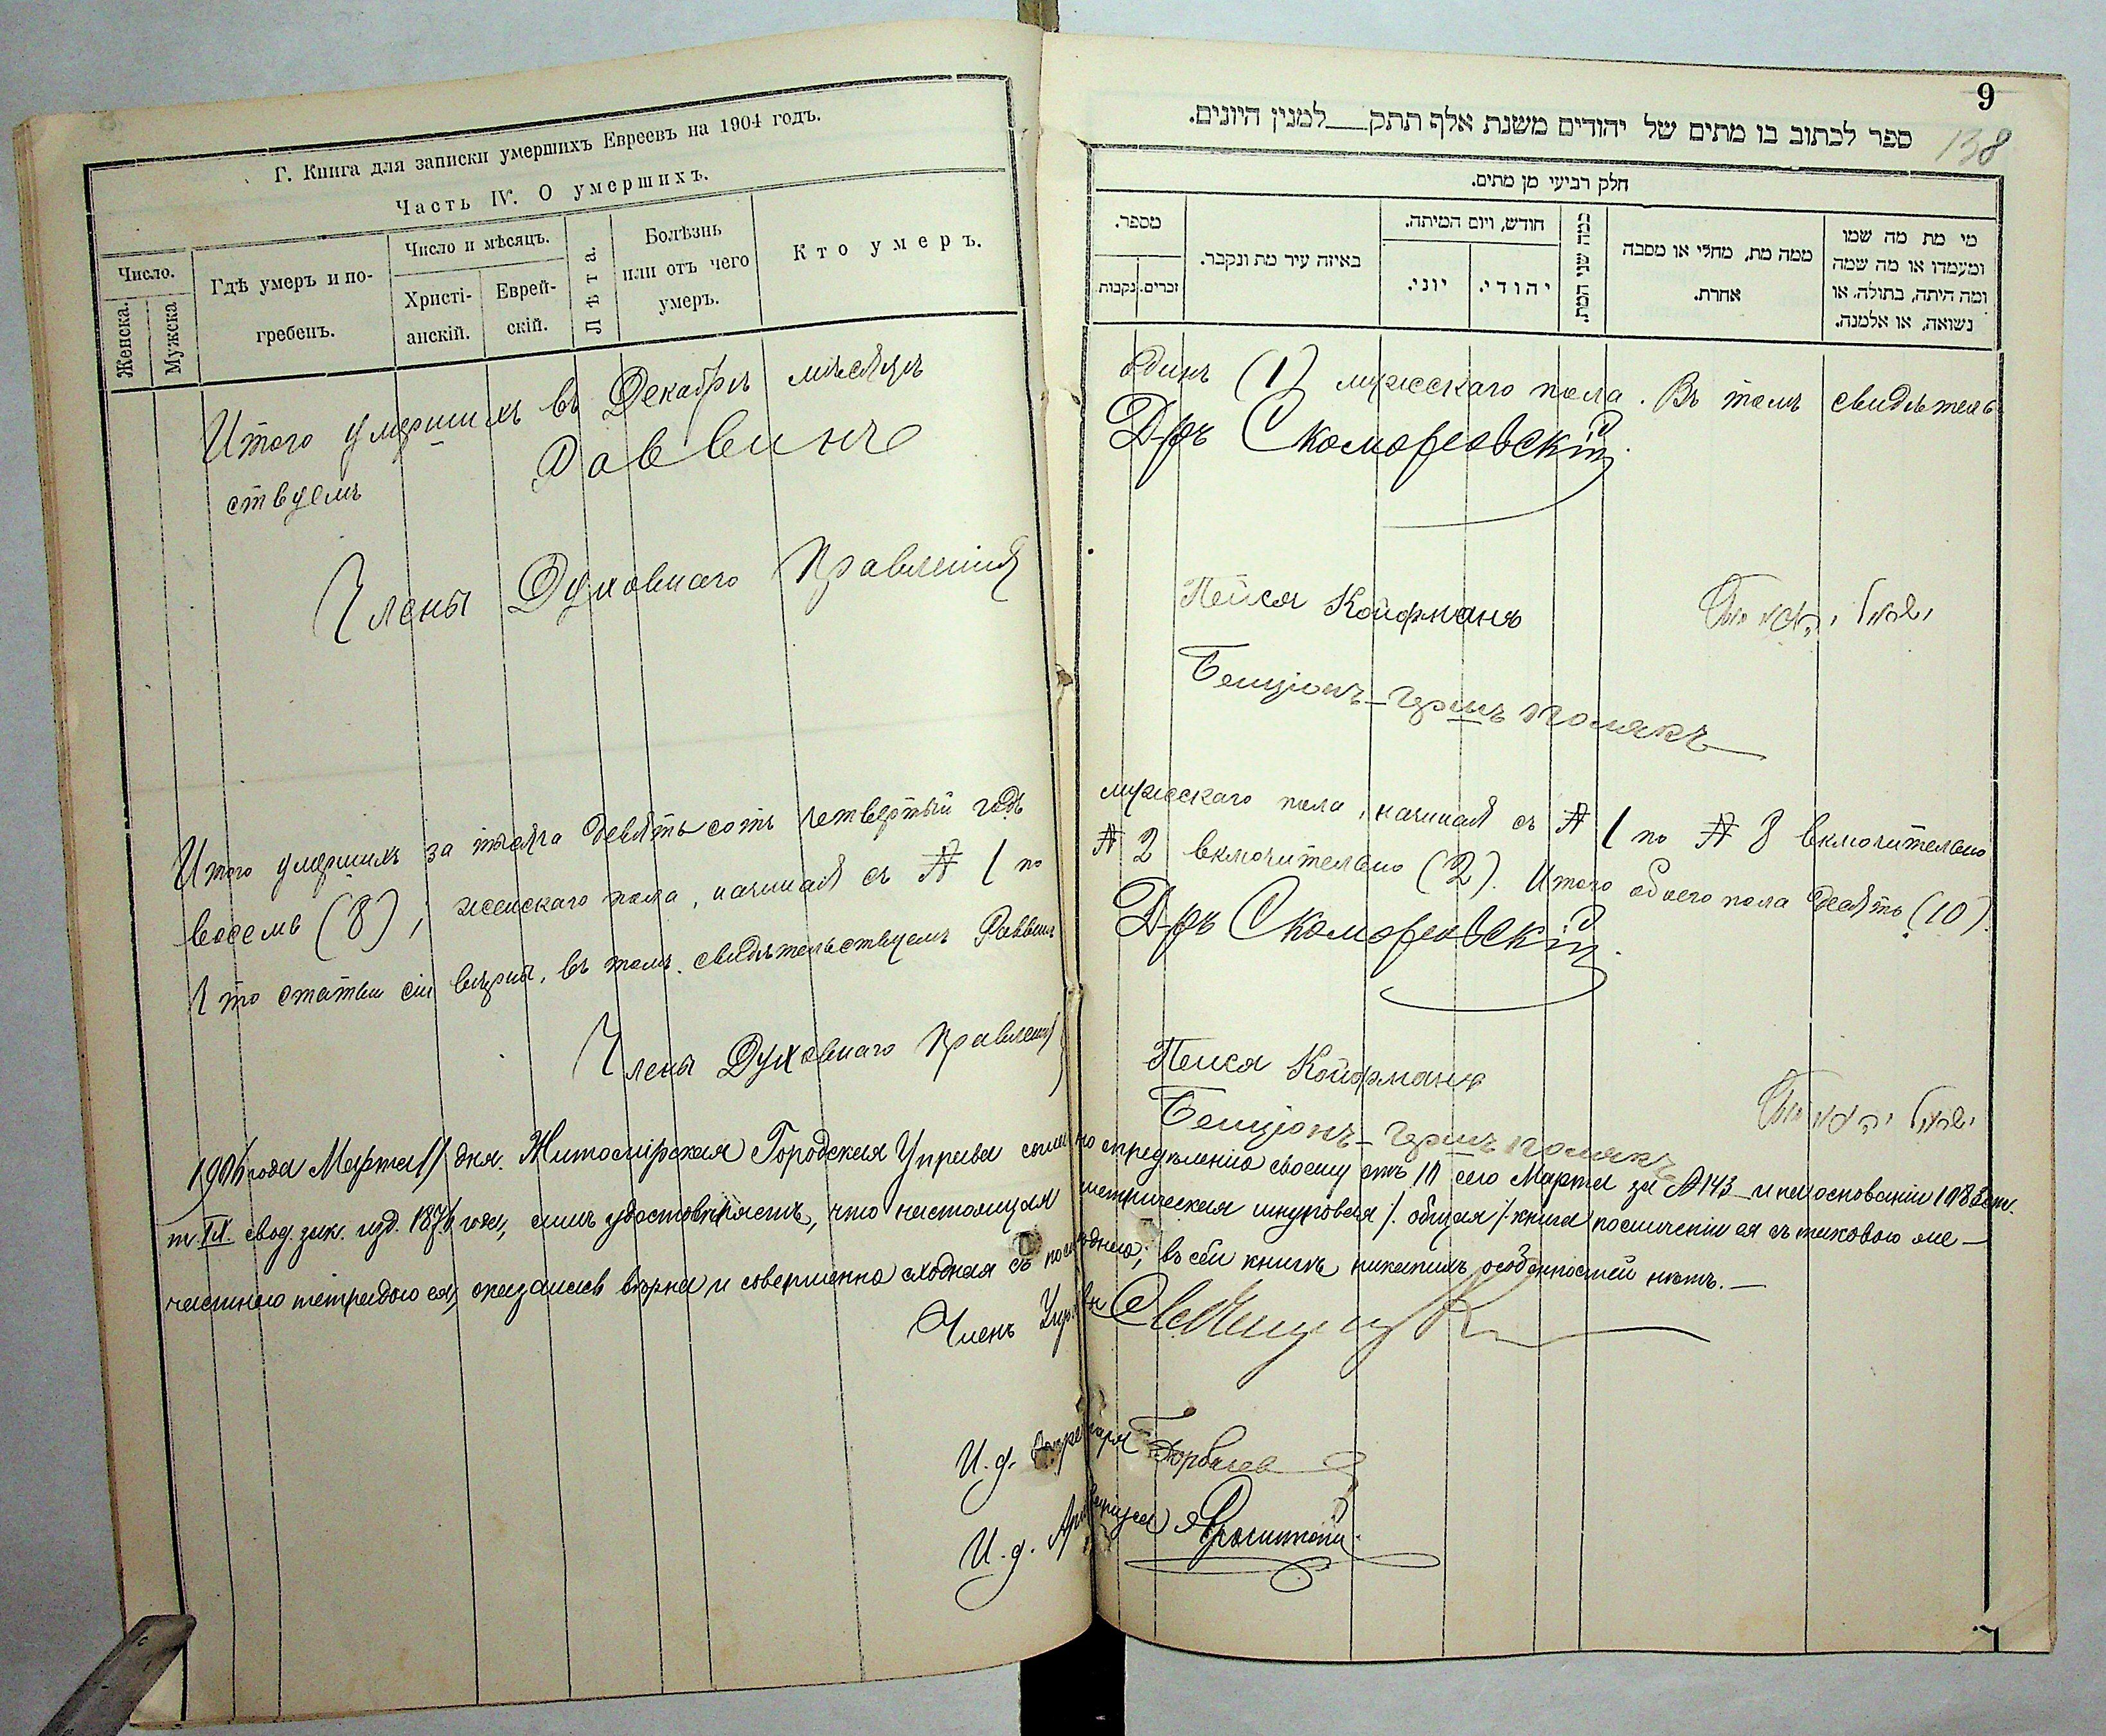 Г. Книга для записки умершихъ Евреевъ на 1904 годъ.
Часть IV. О умершихъ.
Число.
Женска.
Мужска
Гдѣ умеръ и по-
гребенъ.
Число и мѣсяцъ.
Христі-
анскій.
Еврей-
скій.
Лѣта.
Болѣзнь
или отъ чего
умеръ.
Кто умеръ.
9
138
ספר לכתוב בו מתים של יהודים משנת אלף תתק למנין היונים.
חלק רביעי מן מתים.
מספר.
זכרים.
נקבות
באיזה עיר מת ונקבר.
חודש, ויום המיתה.
יוני.
יהודי.
כמה שני המת.
ממה מת, מחלי או מסבה
אחרת.
מי מת מה שמו
ומעמדו או מה שמה
ומה היתה, בתולה, או
נשואה, או אלמנה.
Итого умершихъ въ Декабрѣ мѣсяцѣ одинъ (1) мужескаго пола. Въ томъ свидѣтель
ствуемъ Раввинъ Д-ръ Скоморовскій
Члены Духовнаго Правленія Пейся Койфманъ
Бенціонъ-Гершъ Полякъ
Итого умершихъ за тысяча девятьсотъ четвертый годъ мужескаго пола, начиная съ № 1 по № 8 включительно
восемь (8); женскаго пола, начиная съ № 1 по № 2 включительно (2). Итого обоего пола десять (10).
Что статьи сіи вѣрны, въ томъ свидѣтельствуемъ Раввинъ Д-ръ Скоморовскій
Члены Духовнаго Правленія Пейся Койфманъ
Бенціонъ-Гершъ Полякъ
года Марта 11 дня. Житомірская Городская Управа согласно опредѣленію своему отъ 11 сего Марта за № 143 и на основаніи 1083 ст.
т. IX. свод. зак. изд. 1876 года, симъ удостовѣряетъ, что настоящая метрическая шнуровая /общая/ книга по сличеніи ея съ таковою же
частною тетрадью ея, оказалась вѣрна и совершенно сходная съ послѣднею; въ сей книгѣ никакихъ особенностей нѣтъ.
Членъ Управы
И. д. Секретаря
И. д. Архиваріуса